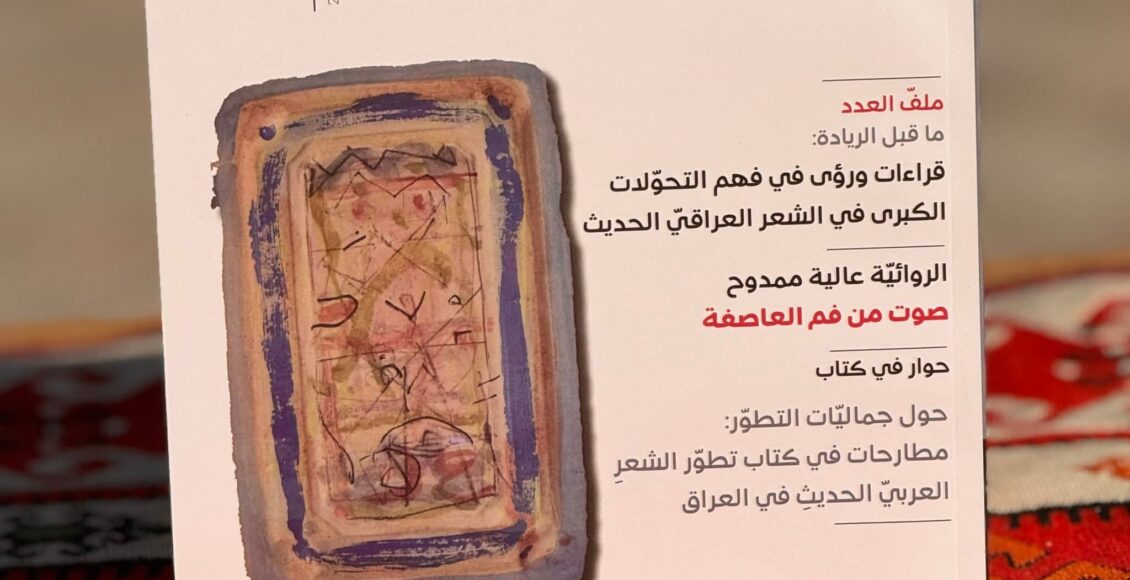 ملفّ العدد
ما قبل الريادة:
قراءات ورؤى في فهم التحوّلات
الكبرى في الشعر العراقيّ الحديث
الروائيّة عالية ممدوح
صوت من فم العاصفة
حوار في كتاب
حول جماليّات التطوّر:
مطارحات في كتاب تطوّر الشعرِ
العربيّ الحديثِ في العراق